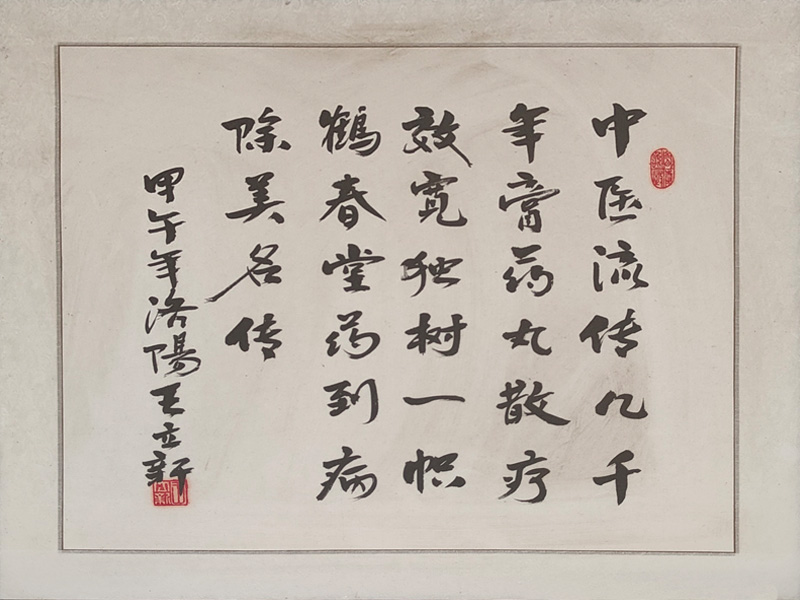 中医流传几千
年膏药丸散疗
效宽独树一帜
鹤春堂药到病
除美名传
甲午年洛陽王立轩